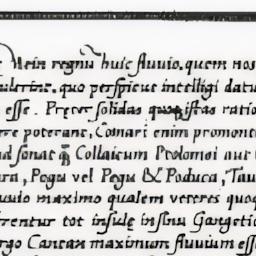 Nein regnũ huic fluvio, quem nos
quo perspicue intelligi datu
esse. Preter solidas quas istas ratio
poterant, Comari enim promont
sonat q̃ Collaicum Ptolomei aut
Pegu vel Pegu & Paduca, Tau
uuio maximo qualem veteres quoq
rentur tot insulę in sinu Gangetic
rgo Cantan maximum fluvium esse